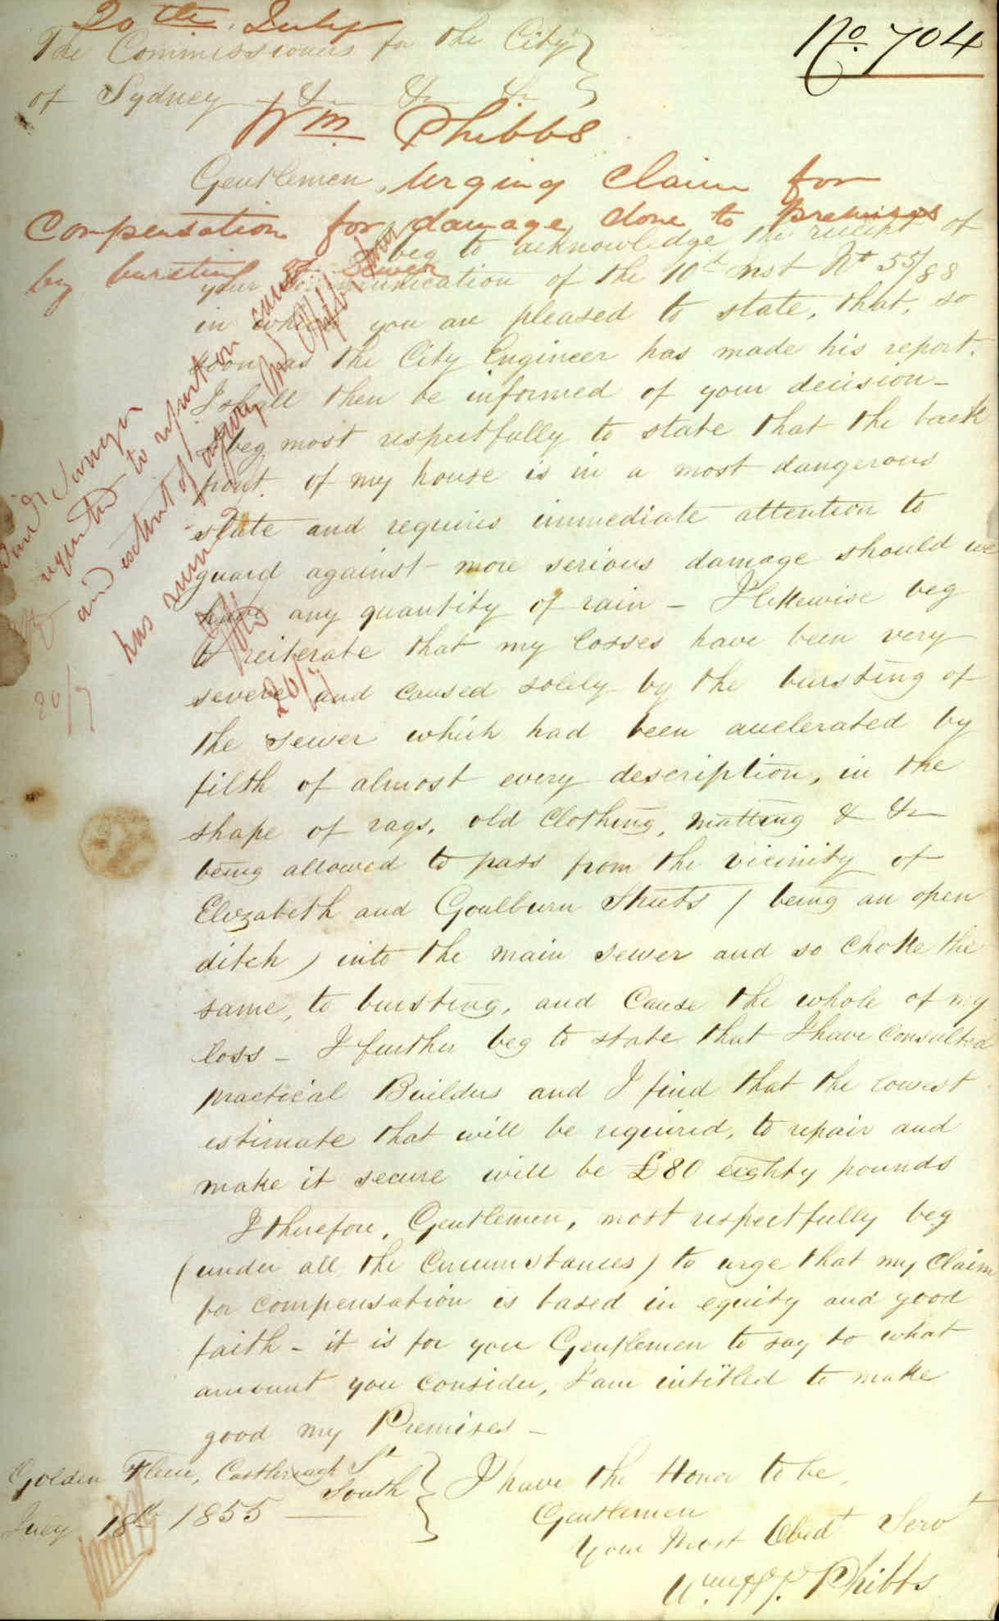 20th July
No. 704
The Commissioners for the City
of Sydney &c &c &c
Wm Phibbs
Gentlemen,
urging claim for
compensation for damage done to premises
by bursting of sewer
beg to acknowledge the receipt of
your communication of the 10th inst No 55/88
in which you are pleased to state, that, so
soon as the City Engineer has made his report.
I shall then be informed of your decision -
I beg most respectfully to state that the back
front of my house is in a most dangerous
state and requires immediate attention to
guard against more serious damage should we
have any quantity of rain - I likewise beg
to reiterate that my losses have been very
severe and caused solely by the bursting of
the sewer which had been accelerated by
filth of almost every description, in the
shape of rags, old clothing, matting & &c
being allowed to pass from the vicinity of
Elizabeth and Goulburn Streets (being an open
ditch) into the main sewer and so choke the
same, to bursting, and cause the whole of my
loss - I further beg to state that I have consulted
practical Builders and I find that the lowest
estimate that will be required, to repair and
make it secure will be £80 eighty pounds
I therefore, Gentlemen, most respectfully beg
(under all the Circumstances) to urge that my claim
for compensation is based in equity and good
faith - it is for you Gentlemen to say to what
amount you consider, I am intitled to make
good my Premises -
Golden Fleece, Castlereagh St
South
July 18th 1855
I have the Honor to be,
Gentlemen
Your Most Obedt Servt
Wm H. P. Phibbs
Surveyor
requested to report on cause
and extent of injury
has
20/7
20/7